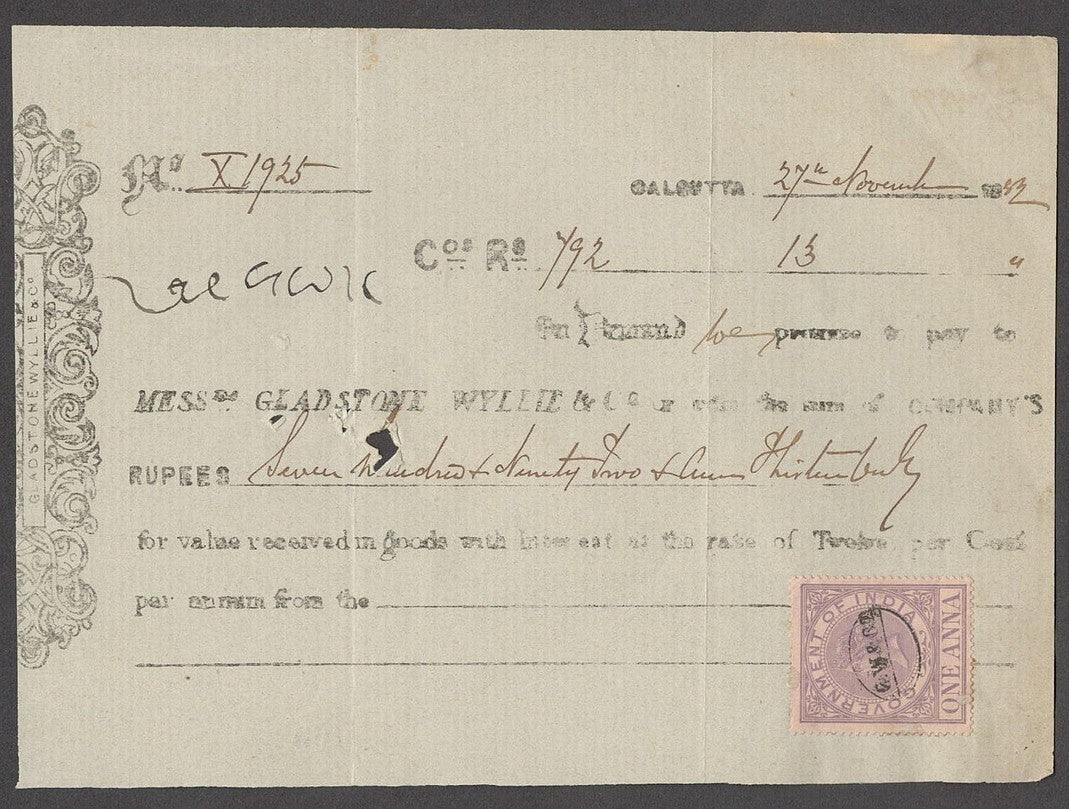 GLADSTONE WYLLIE & Co
No X 1925
CALCUTTA 27th November 1882
Cos Rs 792 13 "
On Demand we promise to pay to
MESSRS GLADSTONE WYLLIE & Co or order the sum of COMPANY'S
RUPEES Seven hundred & Ninety Two & Annas Thirteen only
for value received in goods with interest at the rate of Twelve per Cent
per annum from the
GOVERNMENT OF INDIA
ONE ANNA
G.W. & Co